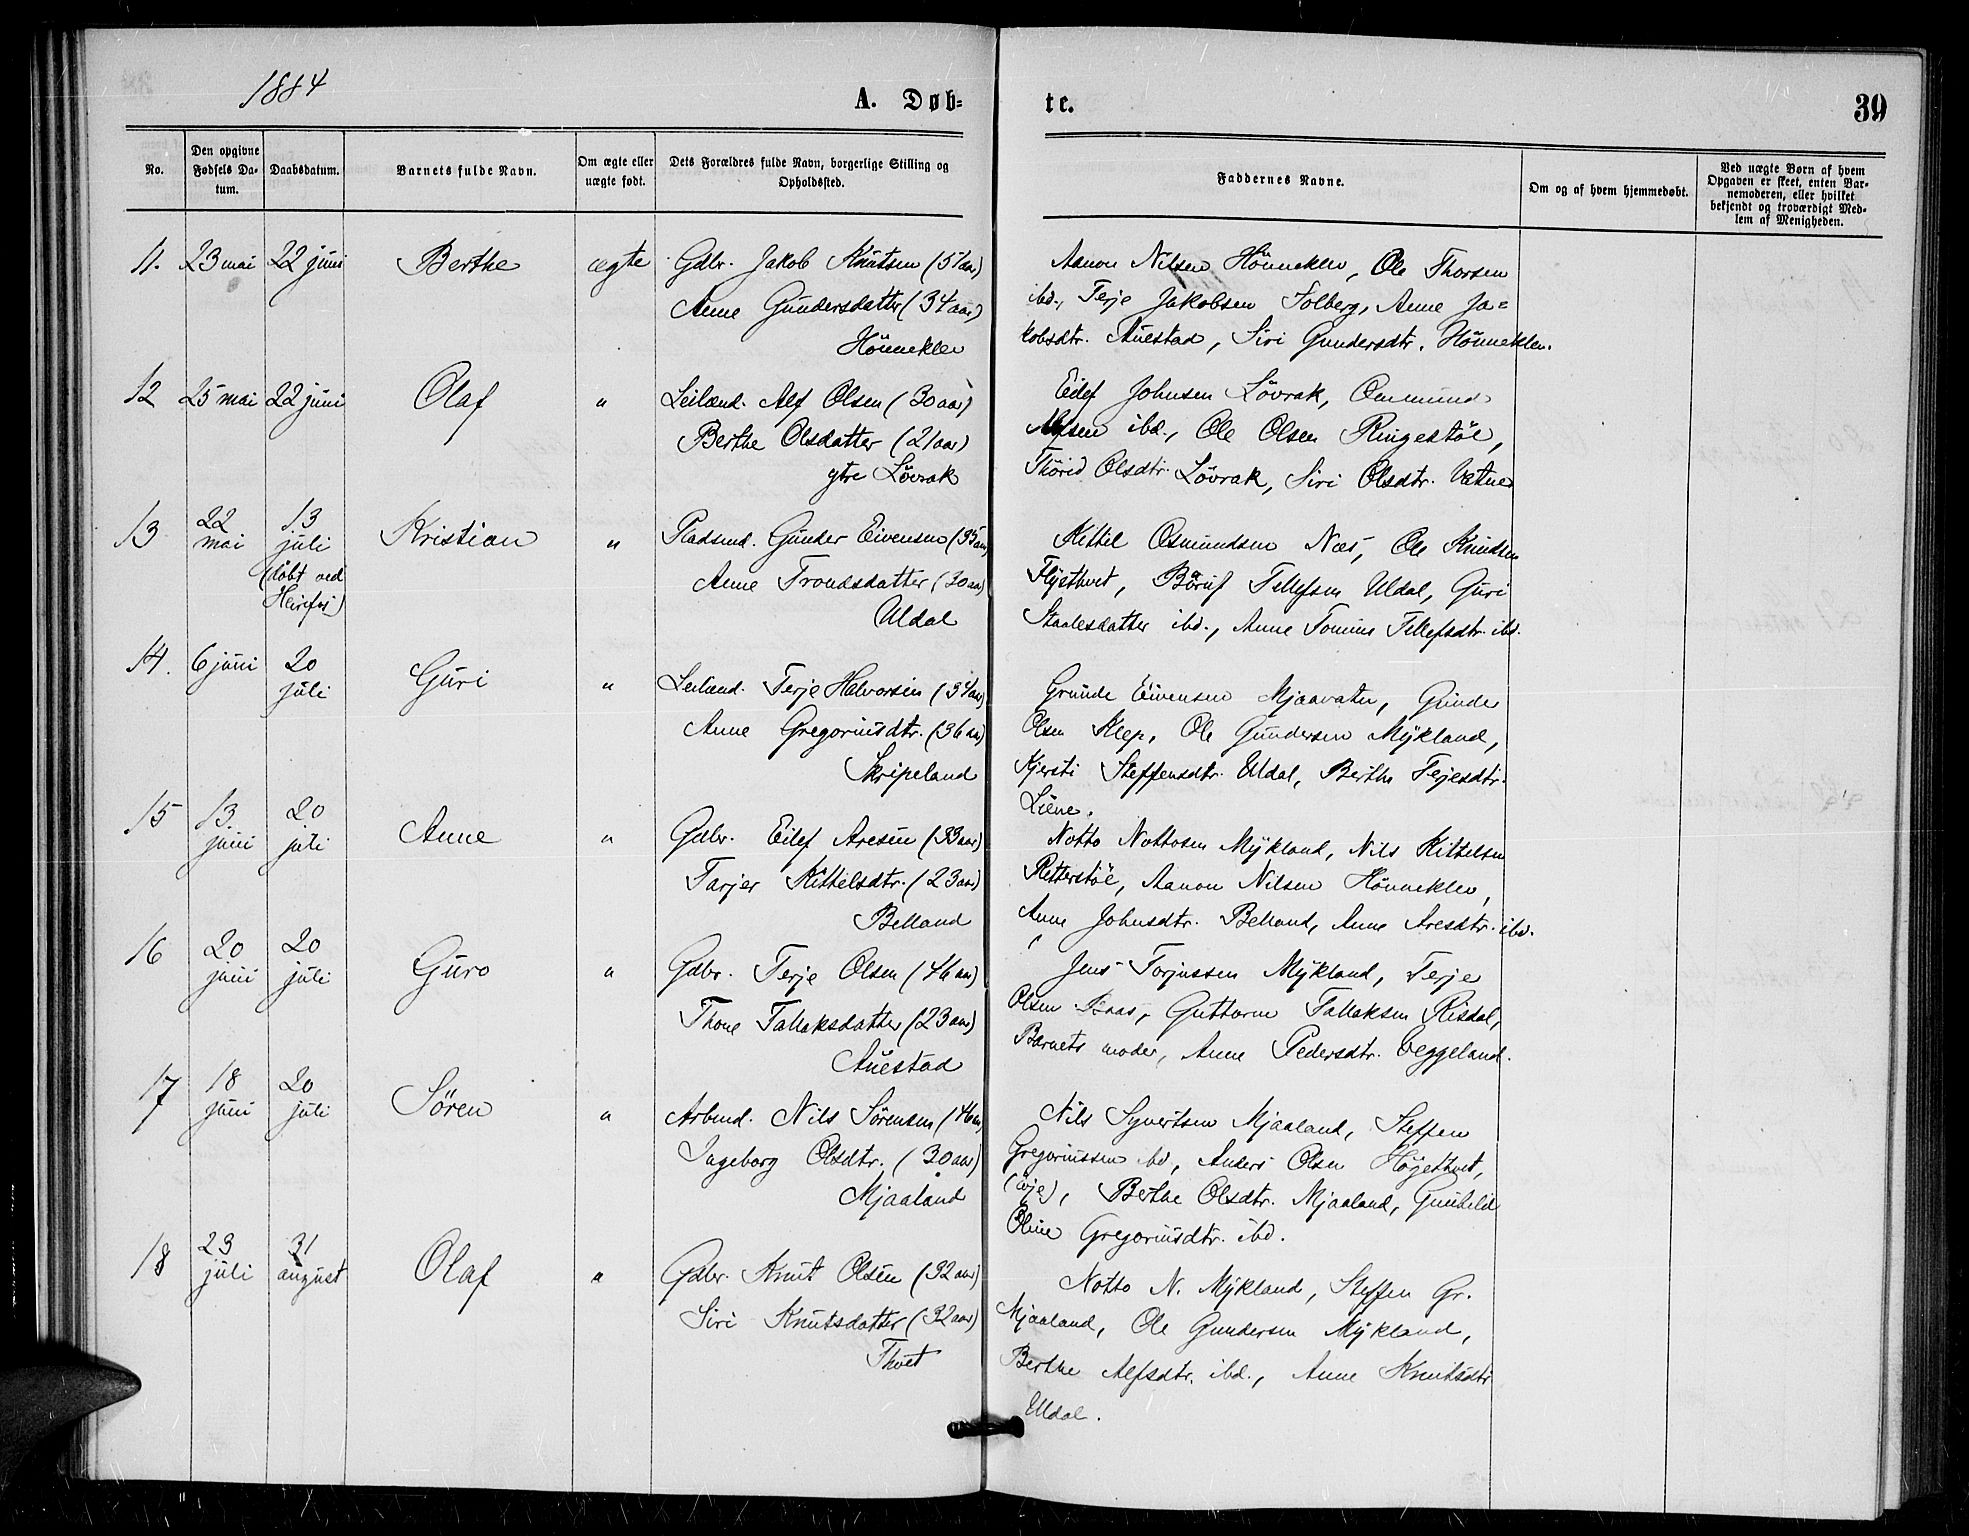 1884
A. Døb=
te.
39
No.
Den opgivne Fødsels Da-
tum.
Daabsdatum.
Barnets fulde Navn.
Om ægte eller
uægte født.
Dets Forældres fulde Navn, borgerlige Stilling og
Opholdssted.
Faddernes Navne.
Om og af hvem hjemmedøbt.
Ved uægte Børn af hvem
Opgaven er skeet, enten Bar-
nemoderen, eller hvilket
bekjendt og troværdigt Med-
lem af Menigheden.
11. 23 mai 22 juni Berthe ægte Gdbr. Jakob Knutsen (51 aar)
Anne Gundersdatter (34 aar)
Hönneklev
Aanon Nilsen Hönneklev, Ole Thorsen
ibd., Terje Jakobsen Solberg, Anne Ja=
kobsdtr. Auestad, Siri Gundersdtr. Hönneklev.
12 25 mai 22 juni Olaf " Leilænd. Alf Olsen (30 aar)
Berthe Olsdatter (21 aar)
ytre Lövrak
Eilef Johnsen Lövrak, Ommund
Alfsen ibd., Ole Olsen Ringestöl,
Thorid Olsdtr. Lövrak, Siri Olsdtr. Vatne
13 22 mai 13 juli (döbt ved Herefos) Kristian " Pladsmd. Gunder Eivensen (35 aar)
Anne Trondsdatter (30 aar)
Uldal
Kittel Osmundsen Næs, Ole Knudsen
Flyethvet, Börüf Tellefsen Uldal, Guri
Staalesdatter ibd., Anne Tomine Tellefsdtr. ibd.
14. 6 juni 20 juli Guri " Leilænd. Terje Halvorsen (34 aar)
Anne Gregoriusdtr. (36 aar)
Skripeland
Grunde Eivensen Mjaavatn, Gunder
Olsen Klep, Ole Gundersen Mykland,
Kjersti Steffensdtr. Uldal, Berthe Terjesdtr.
Liene.
15 13. juni 20 juli Anne " Gdbr. Eilef Aresen (33 aar)
Tarjer Kittelsdtr. (23 aar)
Belland
Notto Nottosen Mykland, Nils Kittelsen
Retterstöl, Aanon Nilsen Hönneklev,
Anne Johnsdtr. Belland, Anne Aresdtr. ibd.
16 20 juni 20 juli Guro " Gdbr. Terje Olsen (46 aar)
Thone Tallaksdatter (23 aar)
Auestad
Jens Torjussen Mykland, Terje
Olsen Baas, Guttorm Tallaksen Risdal,
Barnets moder, Anne Pedersdtr. Veggeland.
17 18 juni 20 juli Sören " Arbmd. Nils Sörensen (46 aar)
Ingeborg Olsdtr. (30 aar)
Mjaaland
Nils Syvertsen Mjaaland, Steffen
Gregoriussen ibd, Anders Olsen Högethvet,
(Evje), Berthe Olsdtr. Mjaaland, Gunhild
Oline Gregoriusdtr. ibd.
18 23 juli 31 august Olaf " Gdbr. Knut Olsen (32 aar)
Siri Knutsdatter (32 aar)
Thvet
Notto N. Mykland, Steffen Gr.
Mjaaland, Ole Gundersen Mykland,
Berthe Alfsdtr. ibd., Anne Knutsdtr
Uldal.